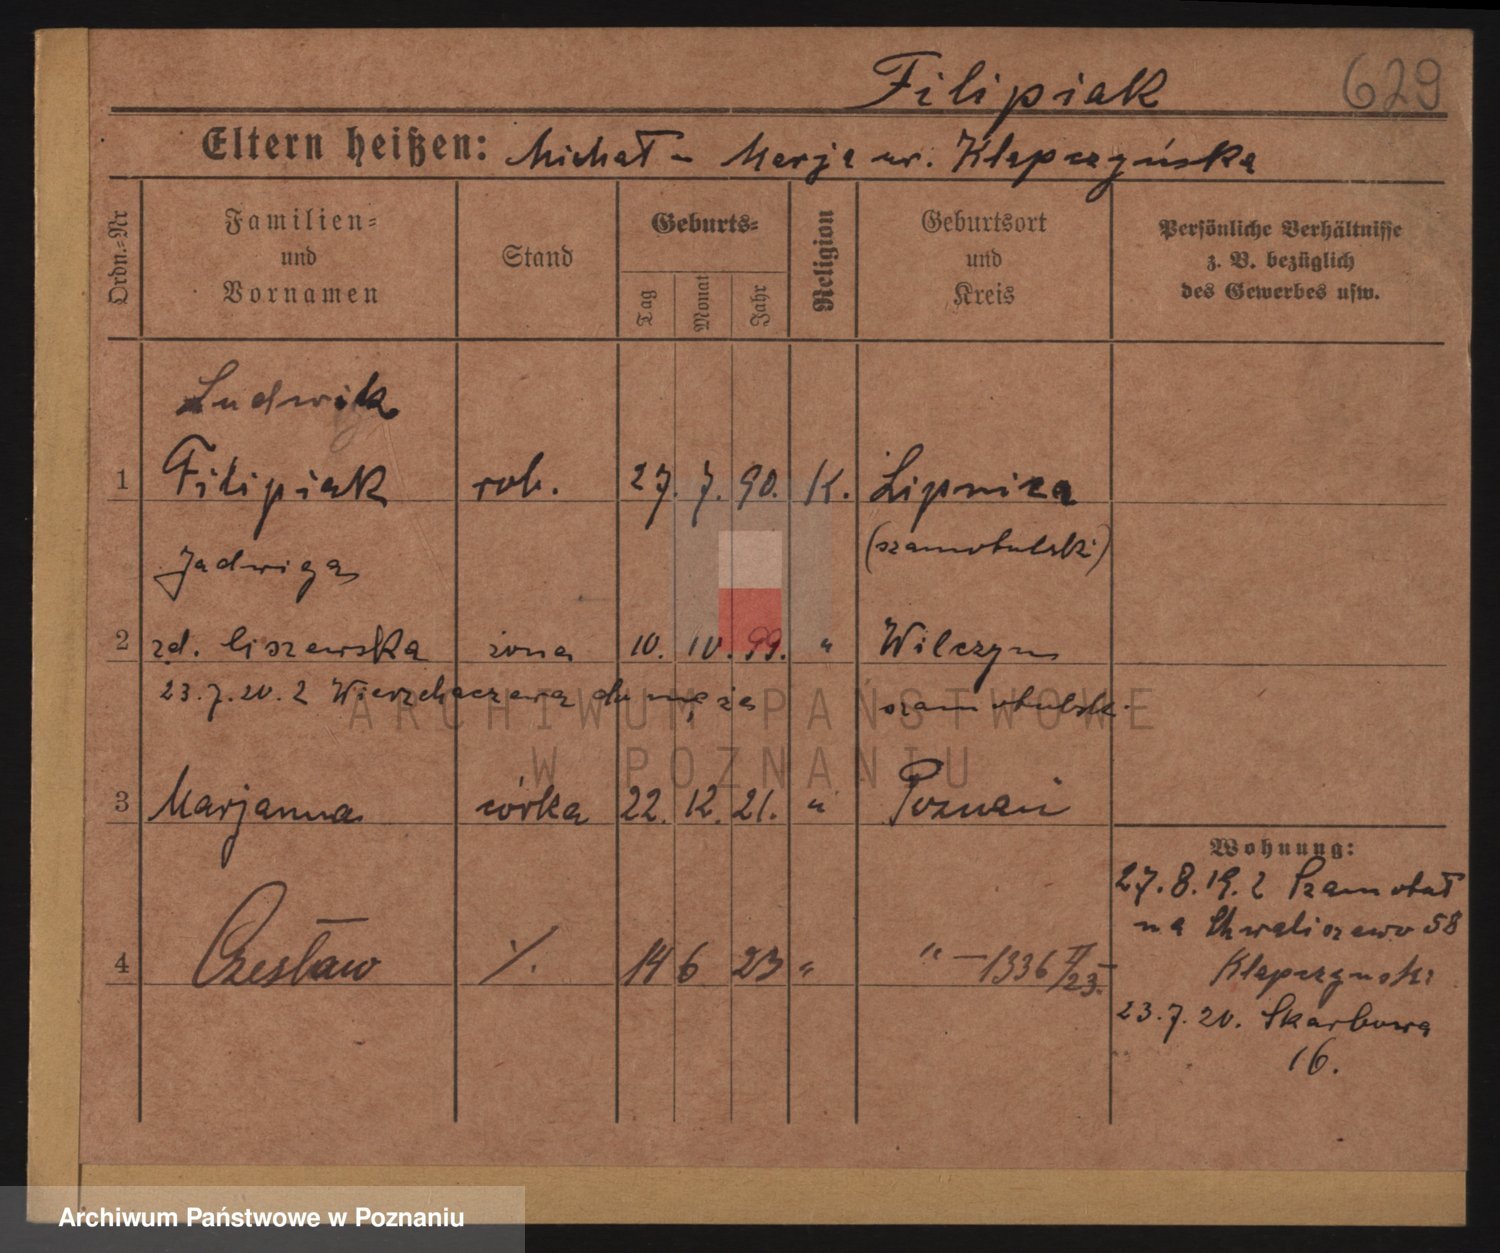 Filipiak 629
Eltern heißen: Michał - Marja ur. Klapczyńska
Ordn.=Nr
Familien=
und
Vornamen
Stand
Geburts=
Tag
Monat
Jahr
Religion
Geburtsort
und
Kreis
Persönliche Verhältnisse
z. B. bezüglich
des Gewerbes usw.
Ludwik
1 Filipiak rob. 27. 7. 90. K. Lipnica
(szamotulski)
Jadwiga
2 zd. Liszewska żona 10. 10. 99. " Wilczyn
23.7.20. z Wierzchaczewa do męża szamotulski
3 Marjanna córka 22. 12. 21. " Poznań
4 Czesław ./. 14 6 23 " " — 1336 II/23.
Wohnung:
27.8.19. z Szamotuł
na Chwaliszewo 58
Klapczyński
23.7.20. Skarbowa
16.
ARCHIWUM PAŃSTWOWE
W POZNANIU
Archiwum Państwowe w Poznaniu